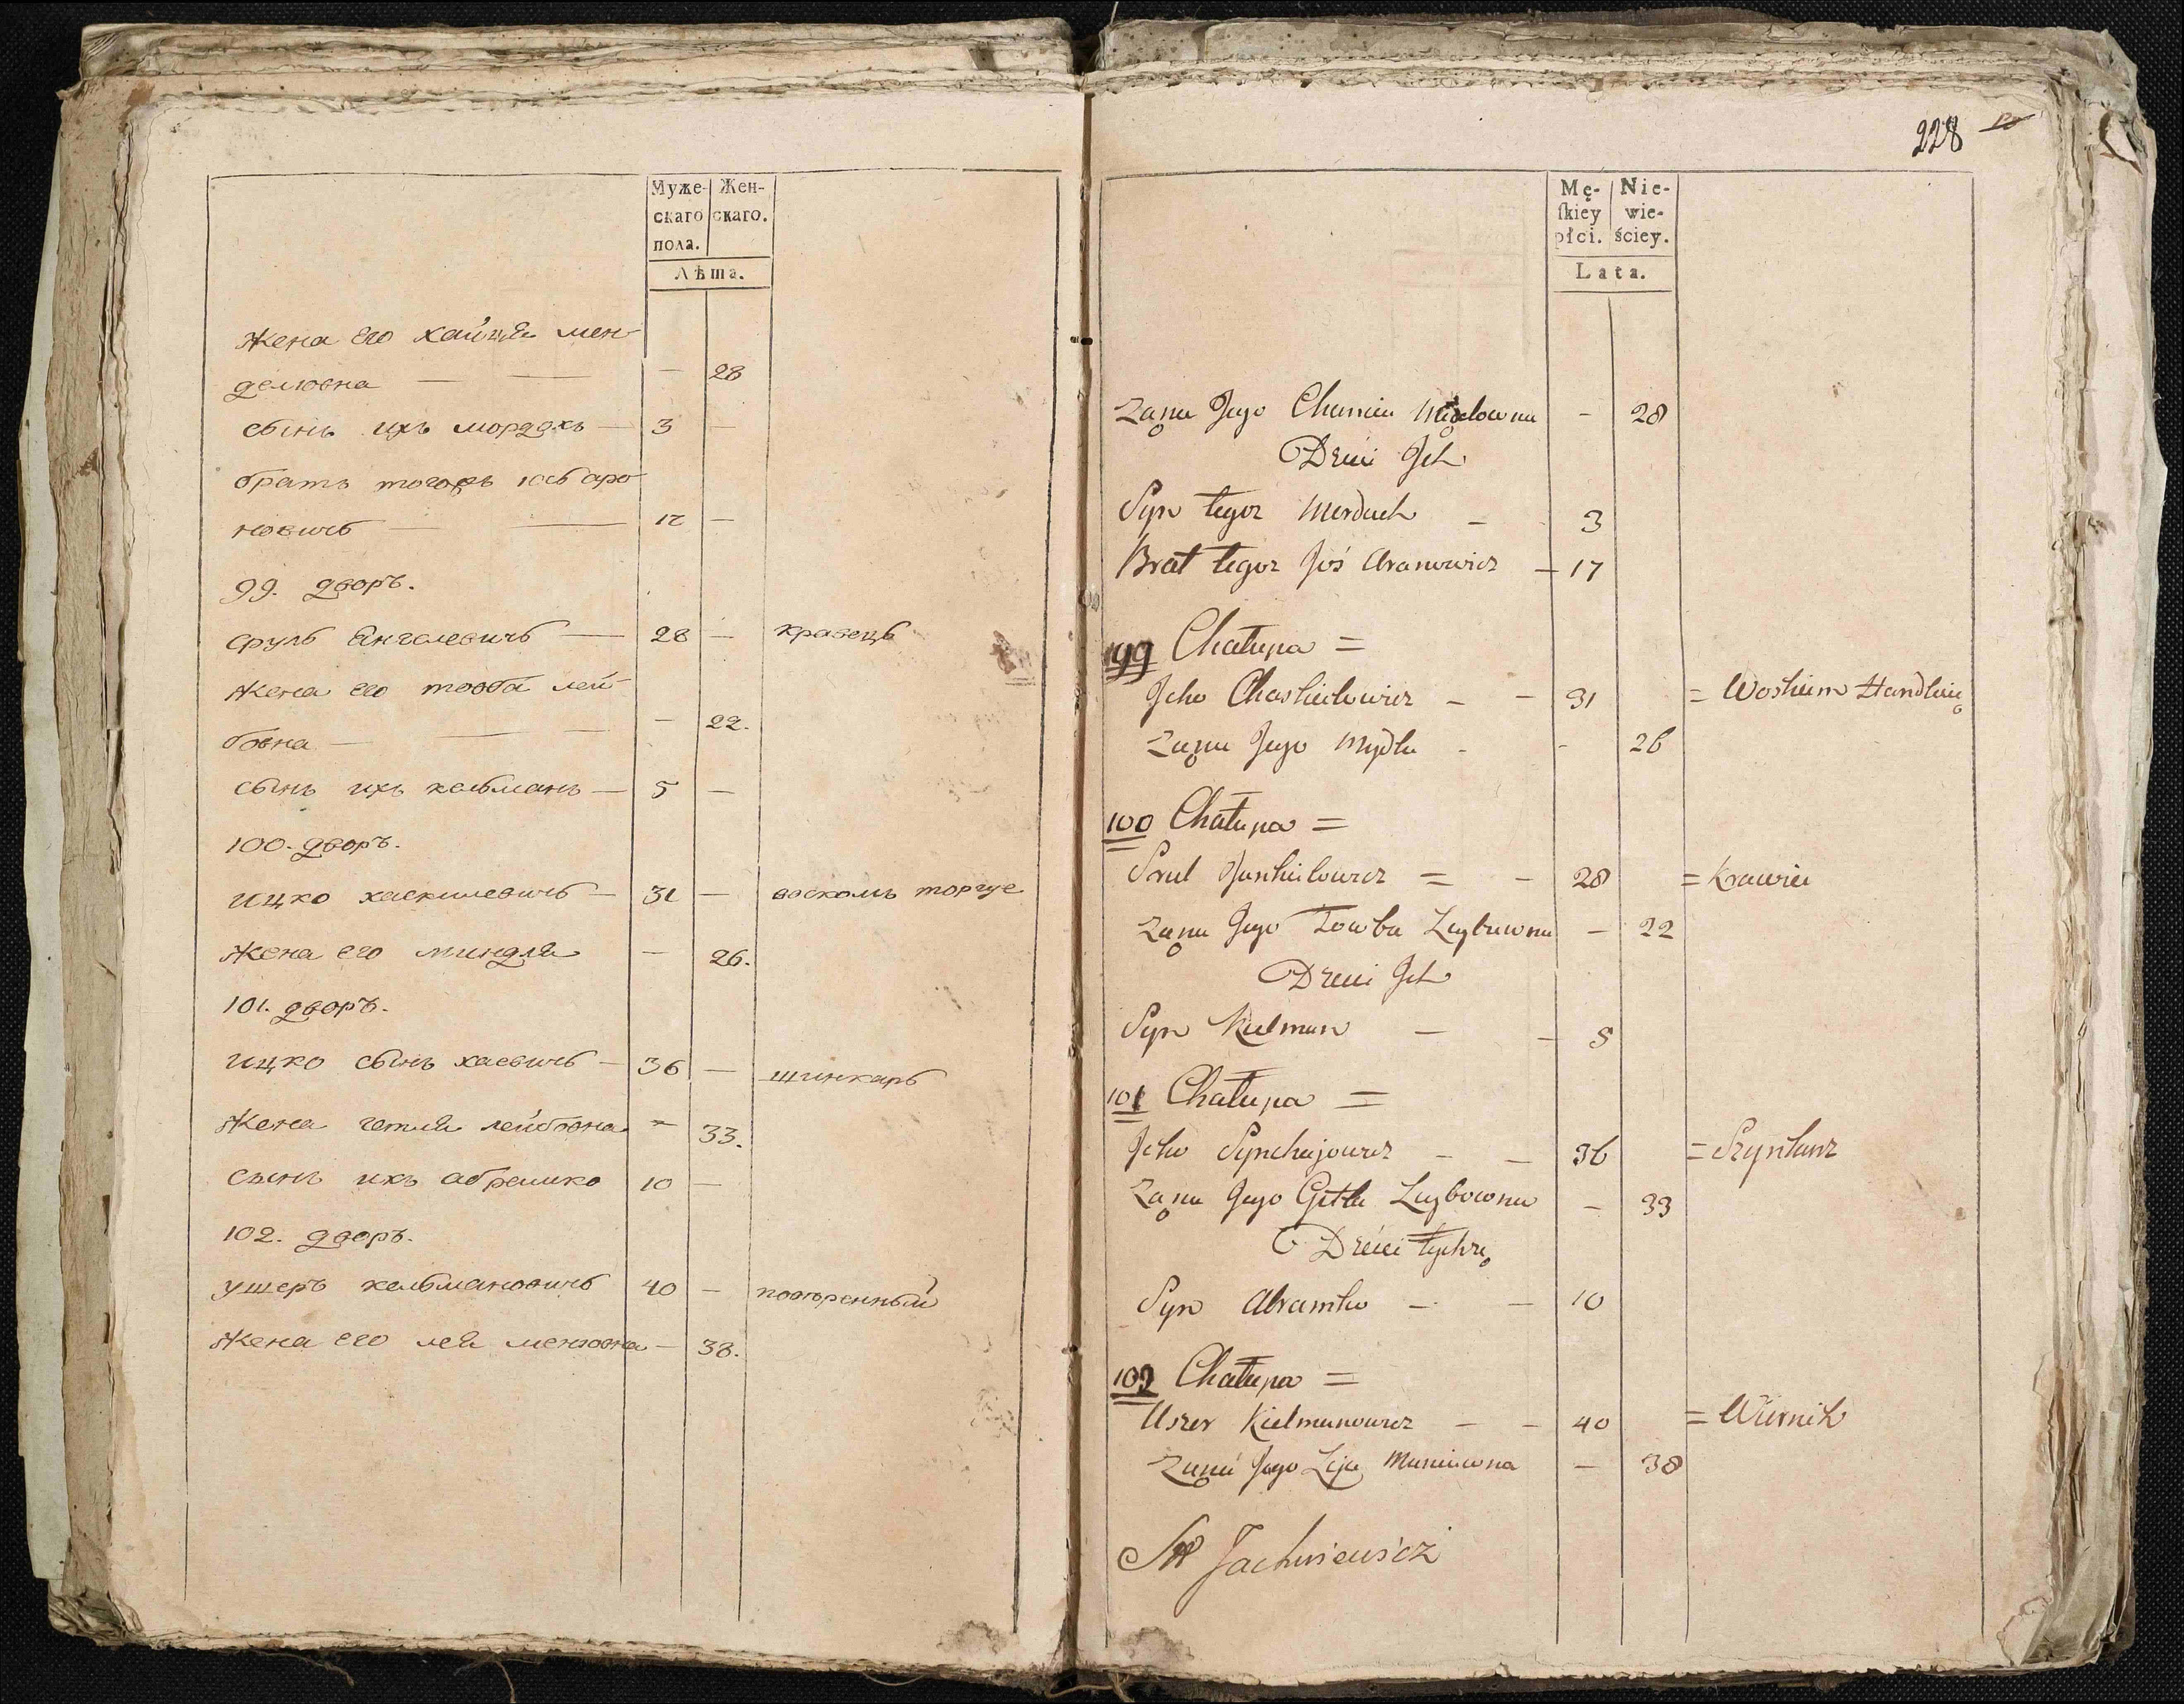 Муже-
скаго
пола.
Жен-
скаго.
Лѣта.
Жена его хайця мен-
делювна — — — 28
сынъ ихъ мордхъ — 3 —
братъ тогожъ юсь аро-
новичь — — 17 —
99. дворъ.
сруль янкелевичь — 28 — кравець
Жена его товба лей-
бовна — — — — 22.
сынъ ихъ кельманъ — 5 —
100. дворъ.
ицко хаскилевичь — 31 — воскомъ торгуе
Жена его миндля — 26.
101. дворъ.
ицко сынъ хаевичь — 36 — шинкарь
Жена гетля лейбовна — 33.
сынъ ихъ абрамко 10 —
102. дворъ.
ушеръ кельмановичь 40 — повѣренный
Жена его лея менювна — 38.
228
Mę-
ſkiey
płci.
Nie-
wie-
ściey.
Lata.
Zona Jego Chamia - 28
Dzieci Jch
Syn tegoz Morduch - 3
Brat tegoz Joś Aranowicz - 17
99 Chałupa =
Jcko Chaskielowicz - - 31 = Woskiem Handluię
Zona Jego Mydla - - 26
100 Chałupa =
Srul Jankielowicz = - 28 = Krawiec
Zona Jego Towba Leybowna - 22
Dzieci Jch
Syn Kielman - - 5
101 Chałupa =
Jcko Synchajowicz - - 36 = Szynkarz
Zona Jego Gitla Leybowna - 33
Dzieci tychże
Syn Abramko - - 10
102 Chałupa =
Uszer Kielmanowicz - - 40 = Wiernik
Zona Jego Leja Maniowna - 38
Jachniewicz